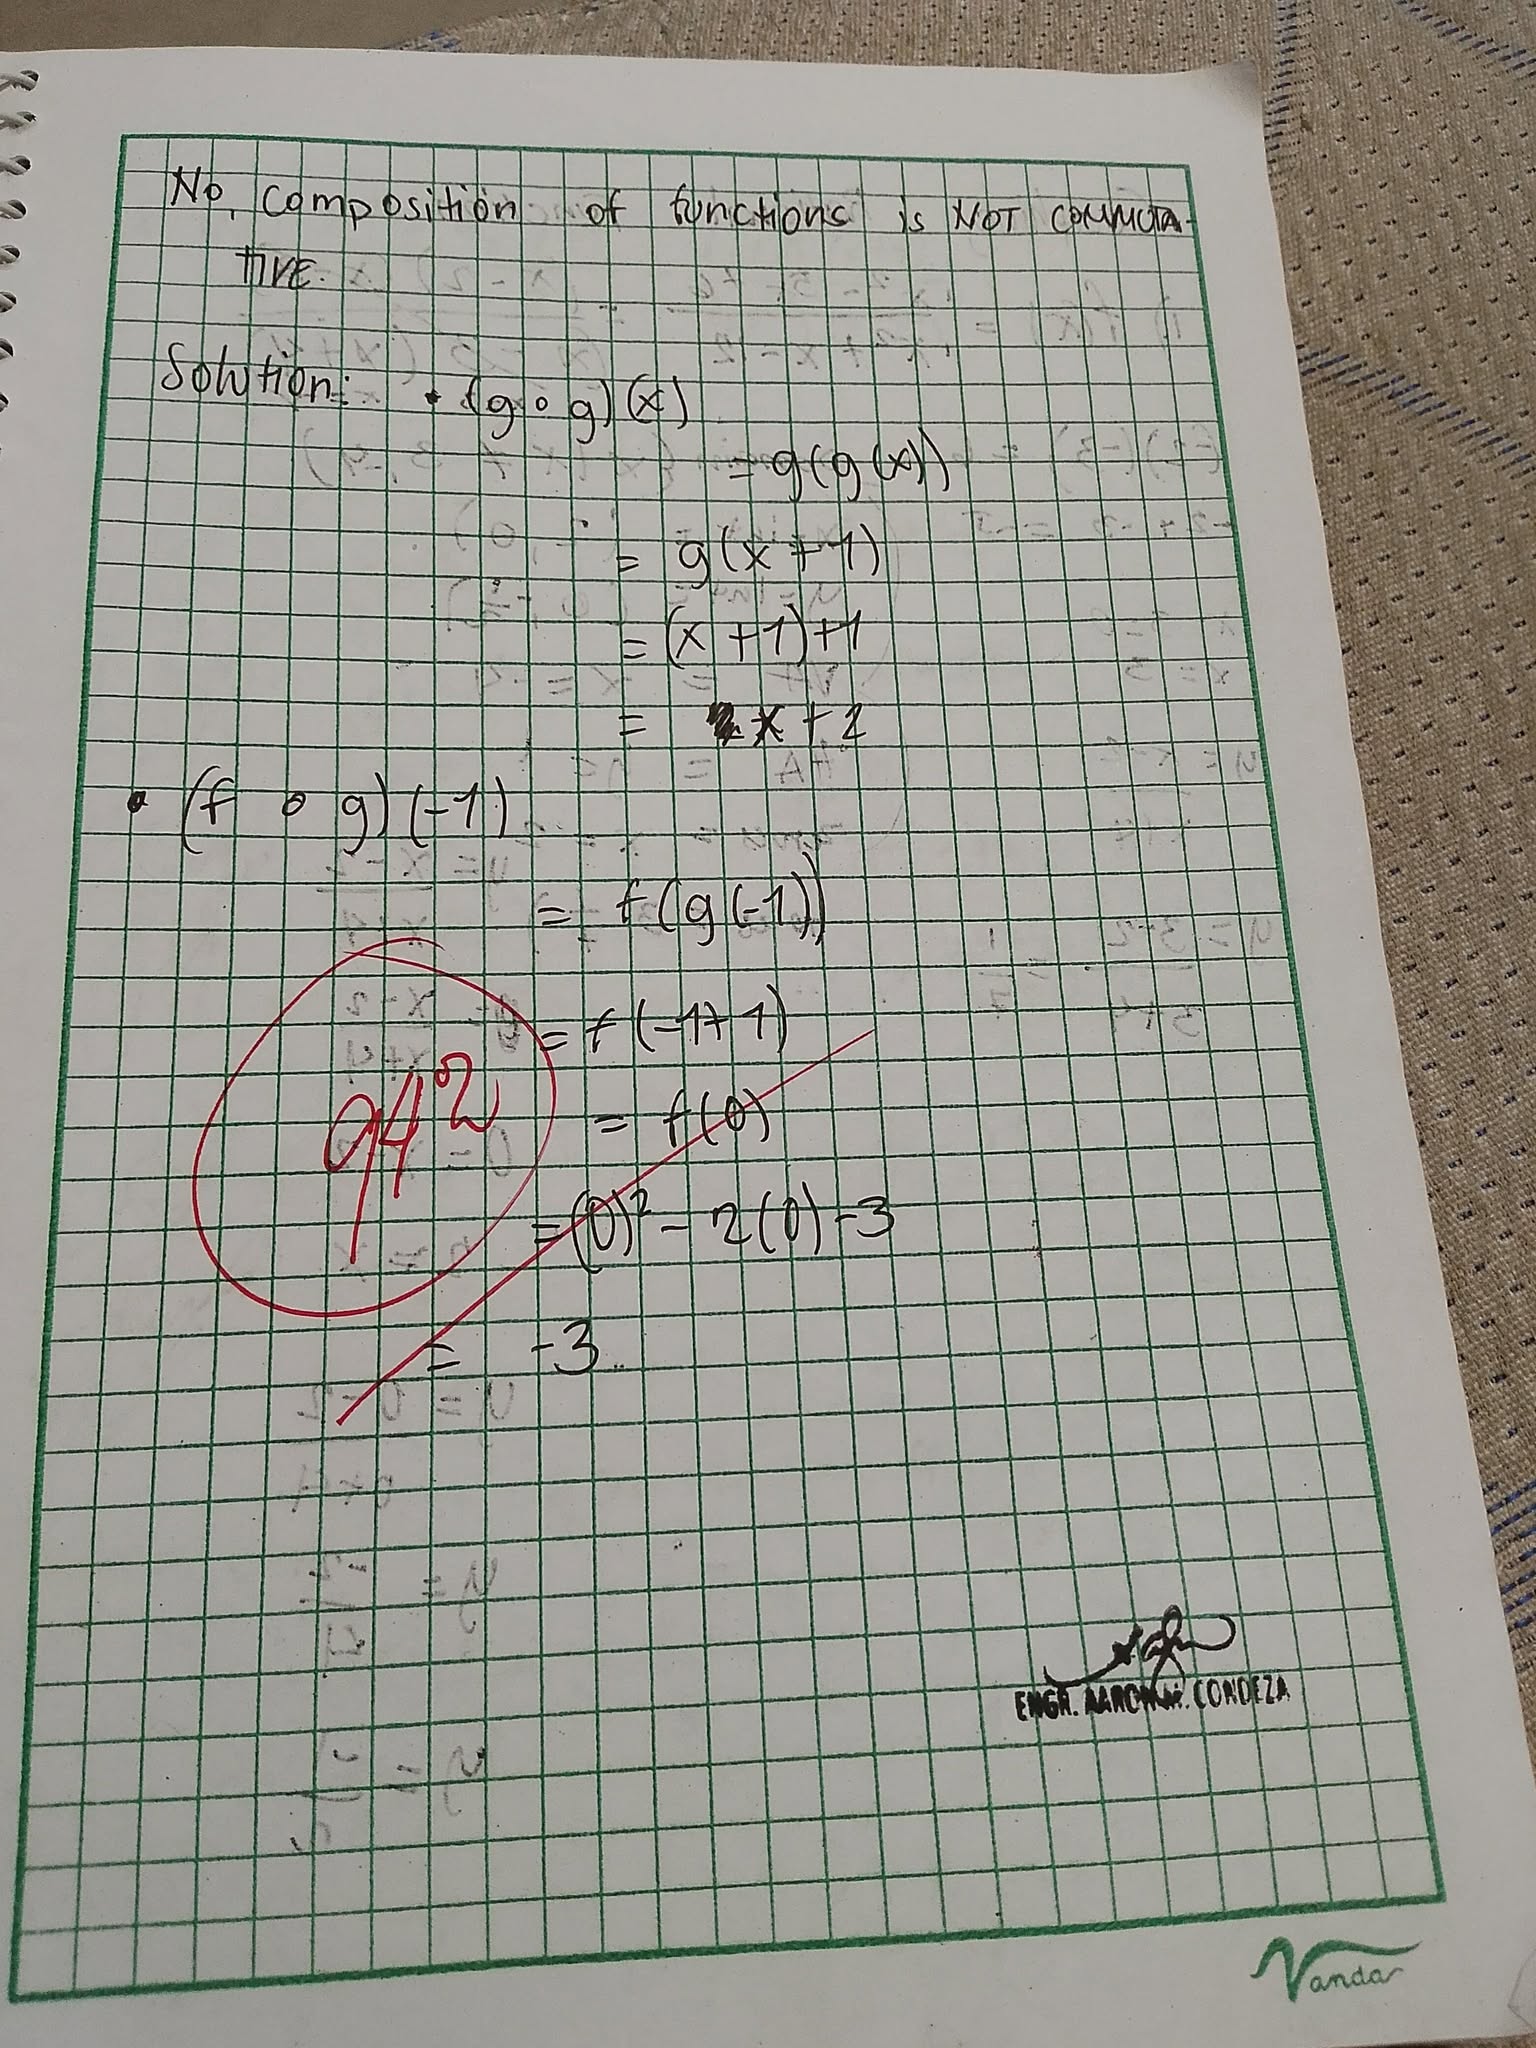 No, composition of functions is NOT COMMUTA-
TIVE.
Solution: • (g∘g)(x)
= g(g(x))
= g(x+1)
= (x+1)+1
= x+2
• (f ∘ g)(-1)
= f(g(-1))
= f(-1+1)
= f(0)
= (0)² - 2(0) - 3
= -3
94
ENGR. AARON M. CONDEZA
Vanda